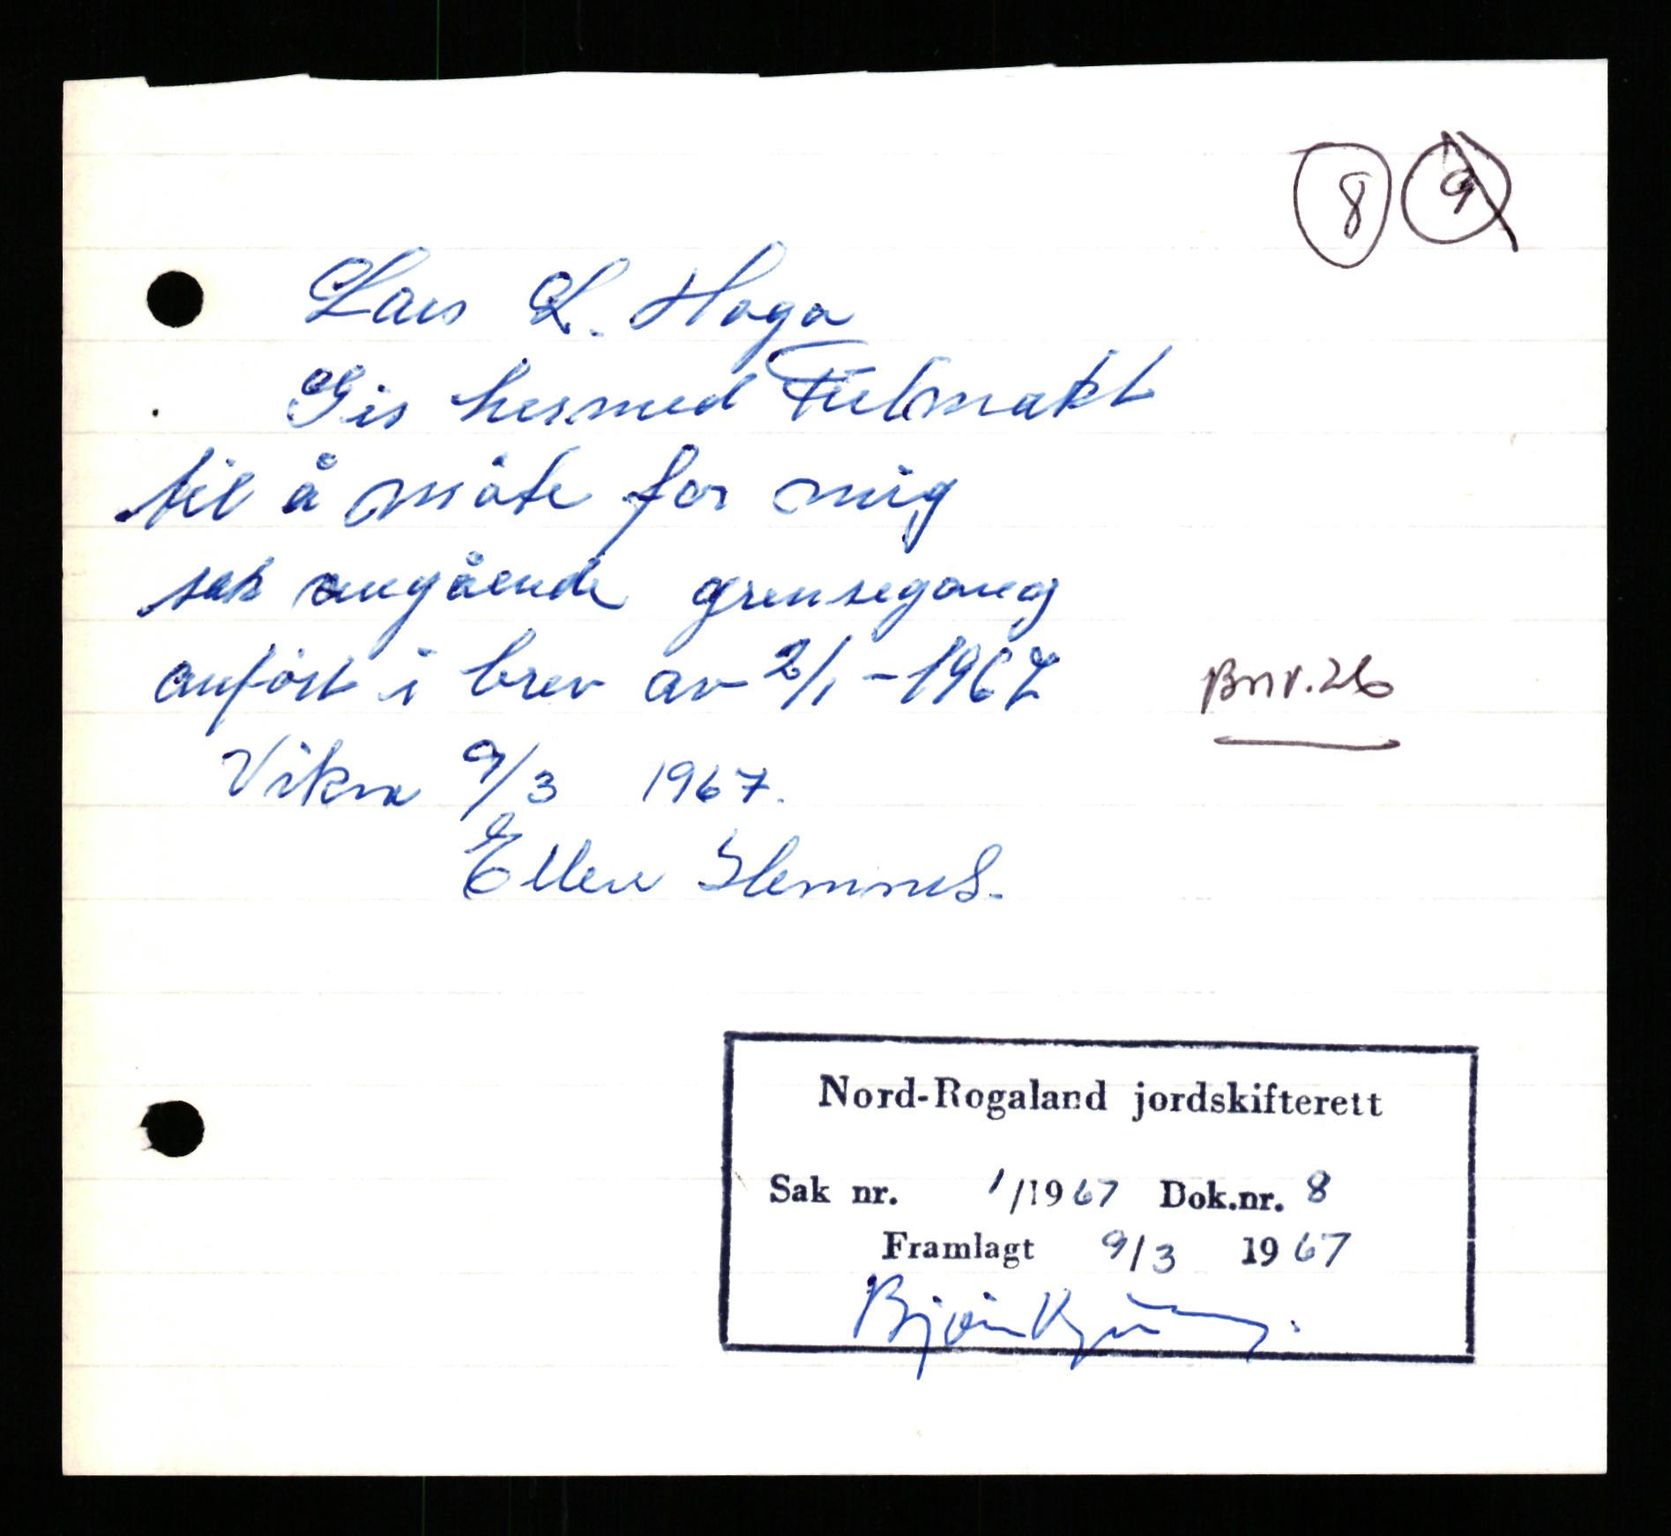 8 9
Lars L. Haga
Gis hermed Fulmakt
til å möte for mig
sak angående grensegang
anfört i brev av 2/1 - 1967
Bnr. 26
Vikra 9/3 1967.
Ellen Slemnes.
Nord-Rogaland jordskifterett
Sak nr. 1/1967 Dok.nr. 8
Framlagt 9/3 1967